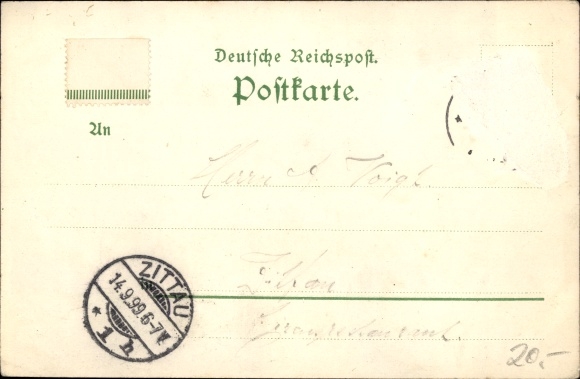 Deutsche Reichspost.
Postkarte.
An
Herrn A. Voigt.
Zittau
ZITTAU
14.9.99.6-7V.
* 1 h
20.-